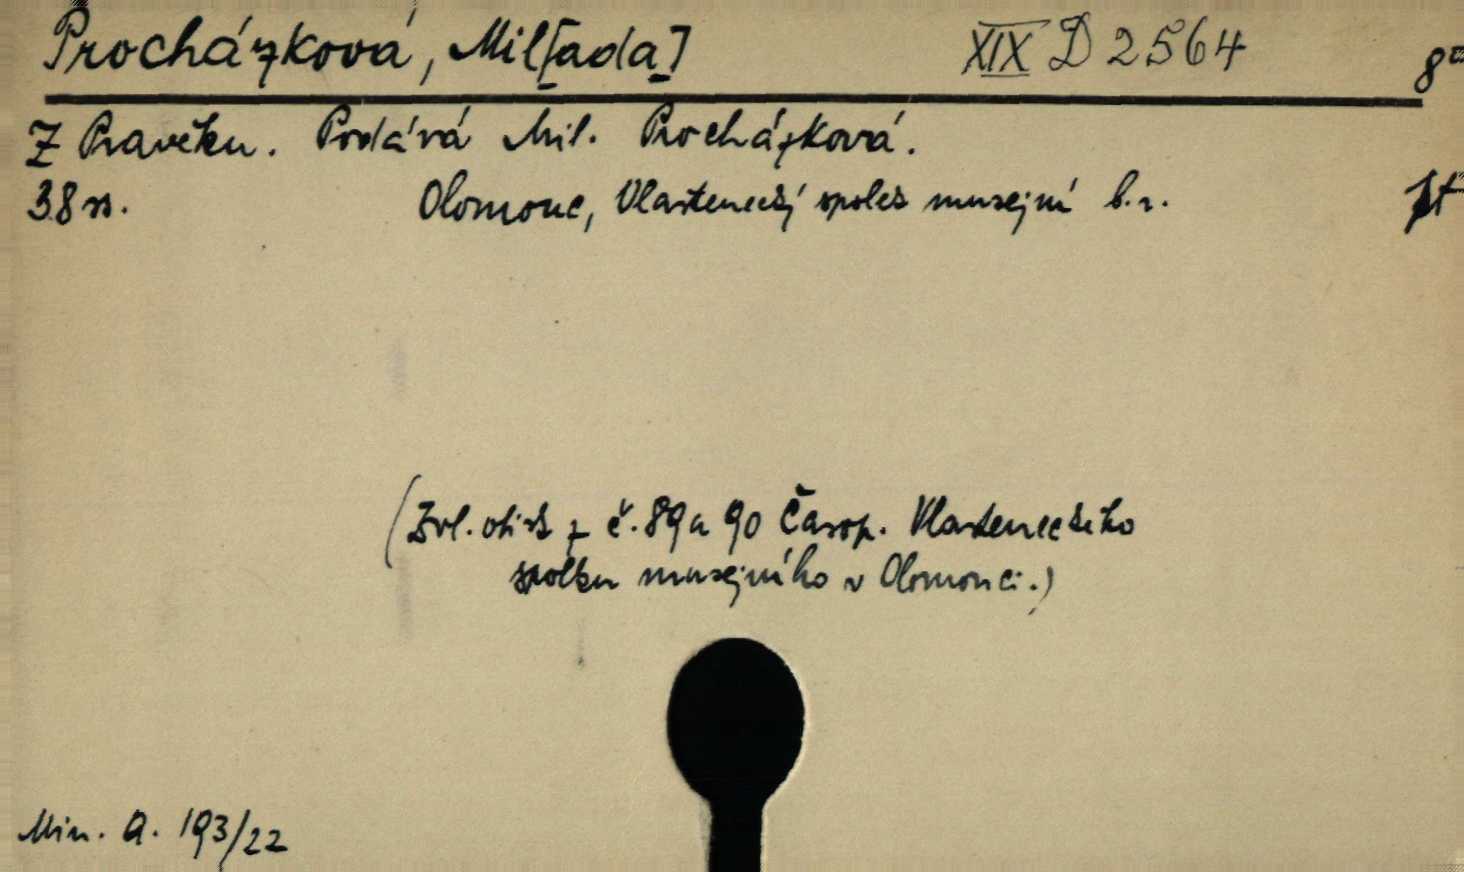 Procházková, Mil[ada] XIX D 2564 8°
Z Pravěku. Podává Mil. Procházková.
38 ss. Olomouc, Vlastenecký spolek musejní b.r.
(Zvl. otisk z č. 89 a 90 Časop. Vlasteneckého
spolku musejního v Olomouci.)
Min. a. 193/22